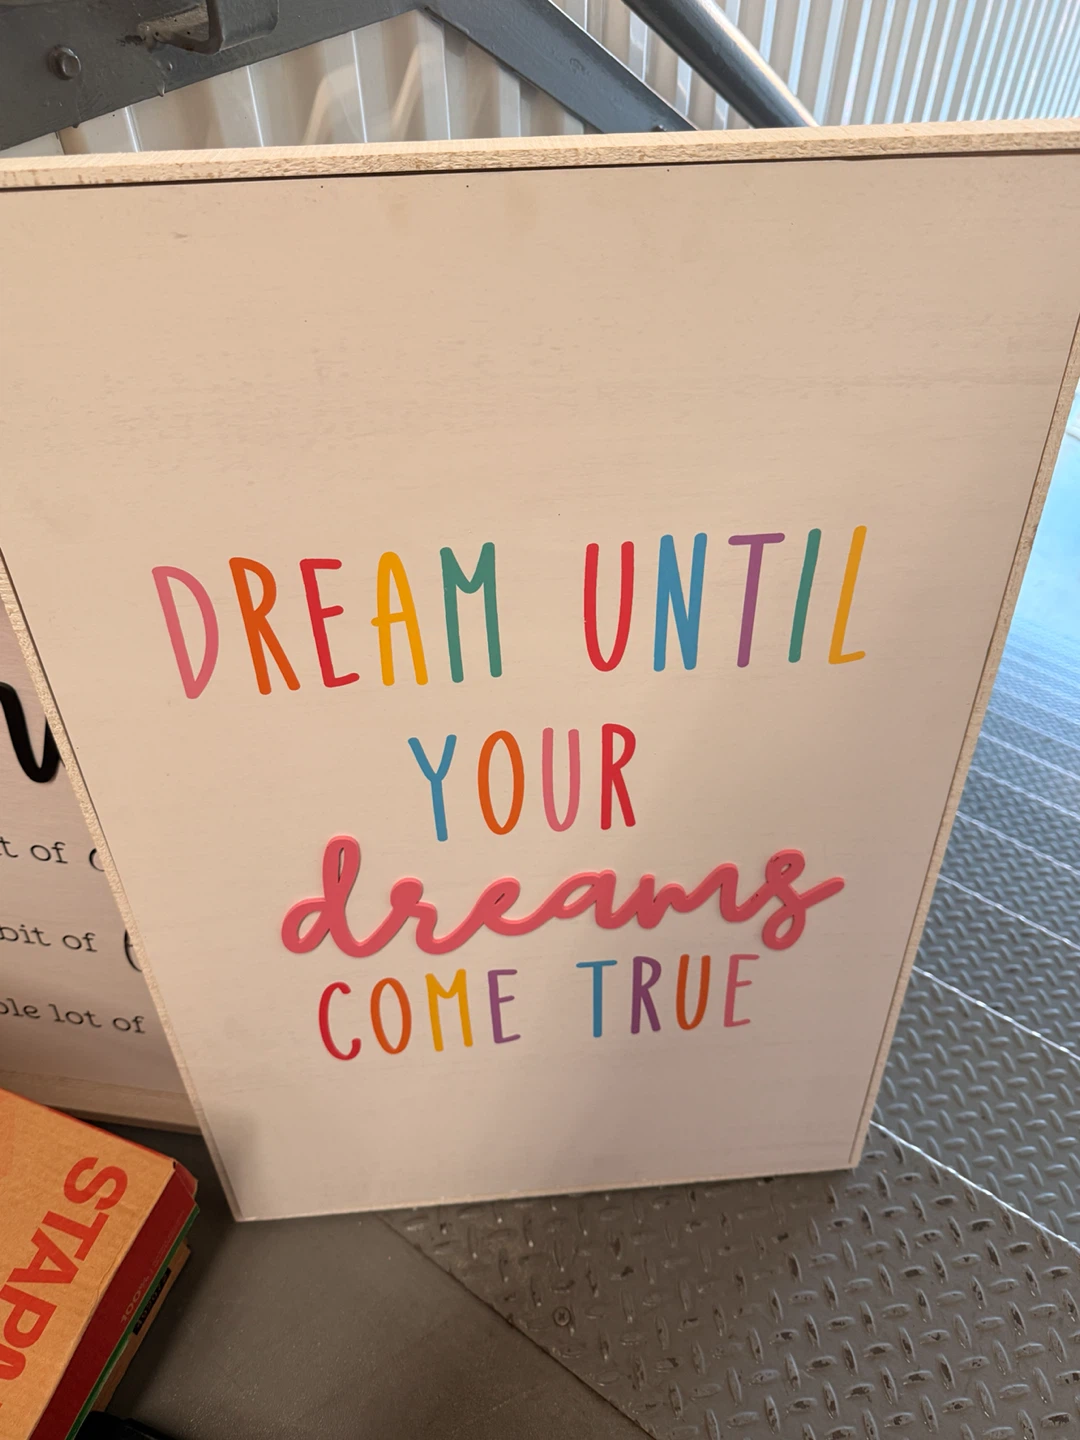 DREAM UNTIL
YOUR
dreams
COME TRUE
of
bit of
lot of
100%